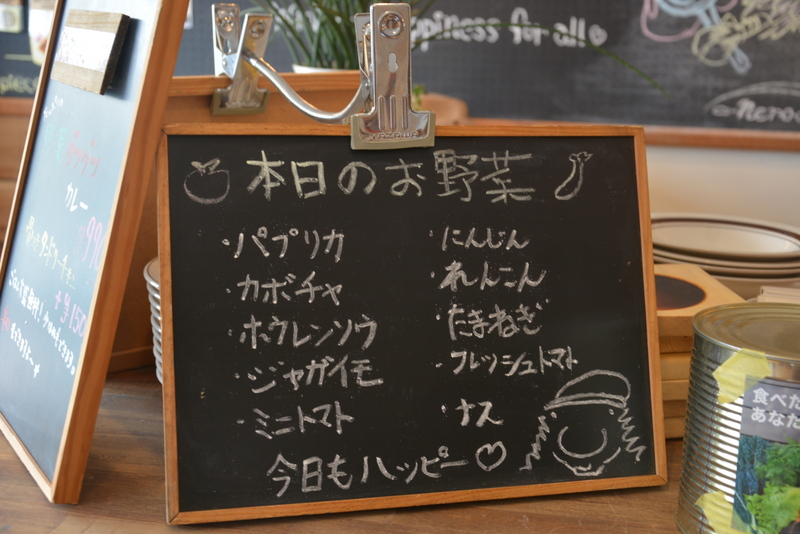 ppiness for all
本日のお野菜
・パプリカ
・カボチャ
・ホウレンソウ
・ジャガイモ
・ミニトマト
・にんじん
・れんこん
・たまねぎ
・フレッシュトマト
・ナス
今日もハッピー♡
カレー
食べた
あなた